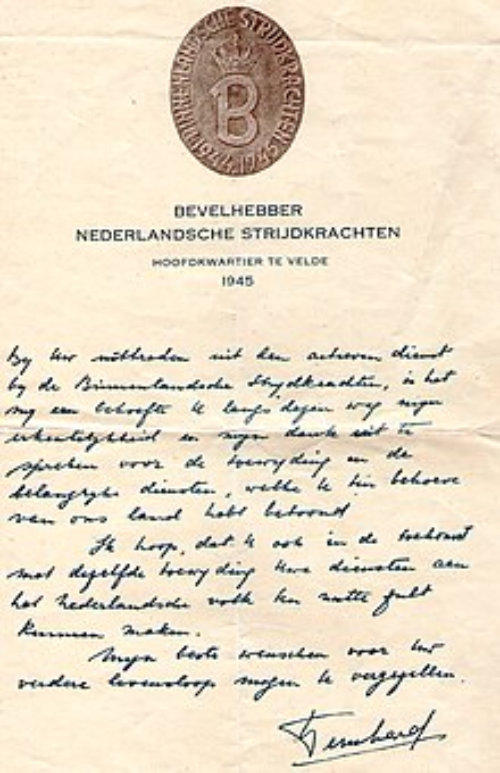 BINNENLANDSCHE STRIJDKRACHTEN
B
1944-1945
BEVELHEBBER
NEDERLANDSCHE STRIJDKRACHTEN
HOOFDKWARTIER TE VELDE
1945
By Uw uittreden uit den actieven dienst
by de Binnenlandsche Strydkrachten, is het
my een behoefte U langs dezen weg myn
erkentelykheid en myn dank uit te
spreken voor de toewyding en de
belangryke diensten, welke U ten behoeve
van ons land hebt betoond
Ik hoop, dat U ook in de toekomst
met dezelfde toewyding Uwe diensten aan
het Nederlandsche volk ten nutte zult
kunnen maken.
Myn beste wenschen voor Uw
verdere levensloop mogen U vergezellen.
Bernhard